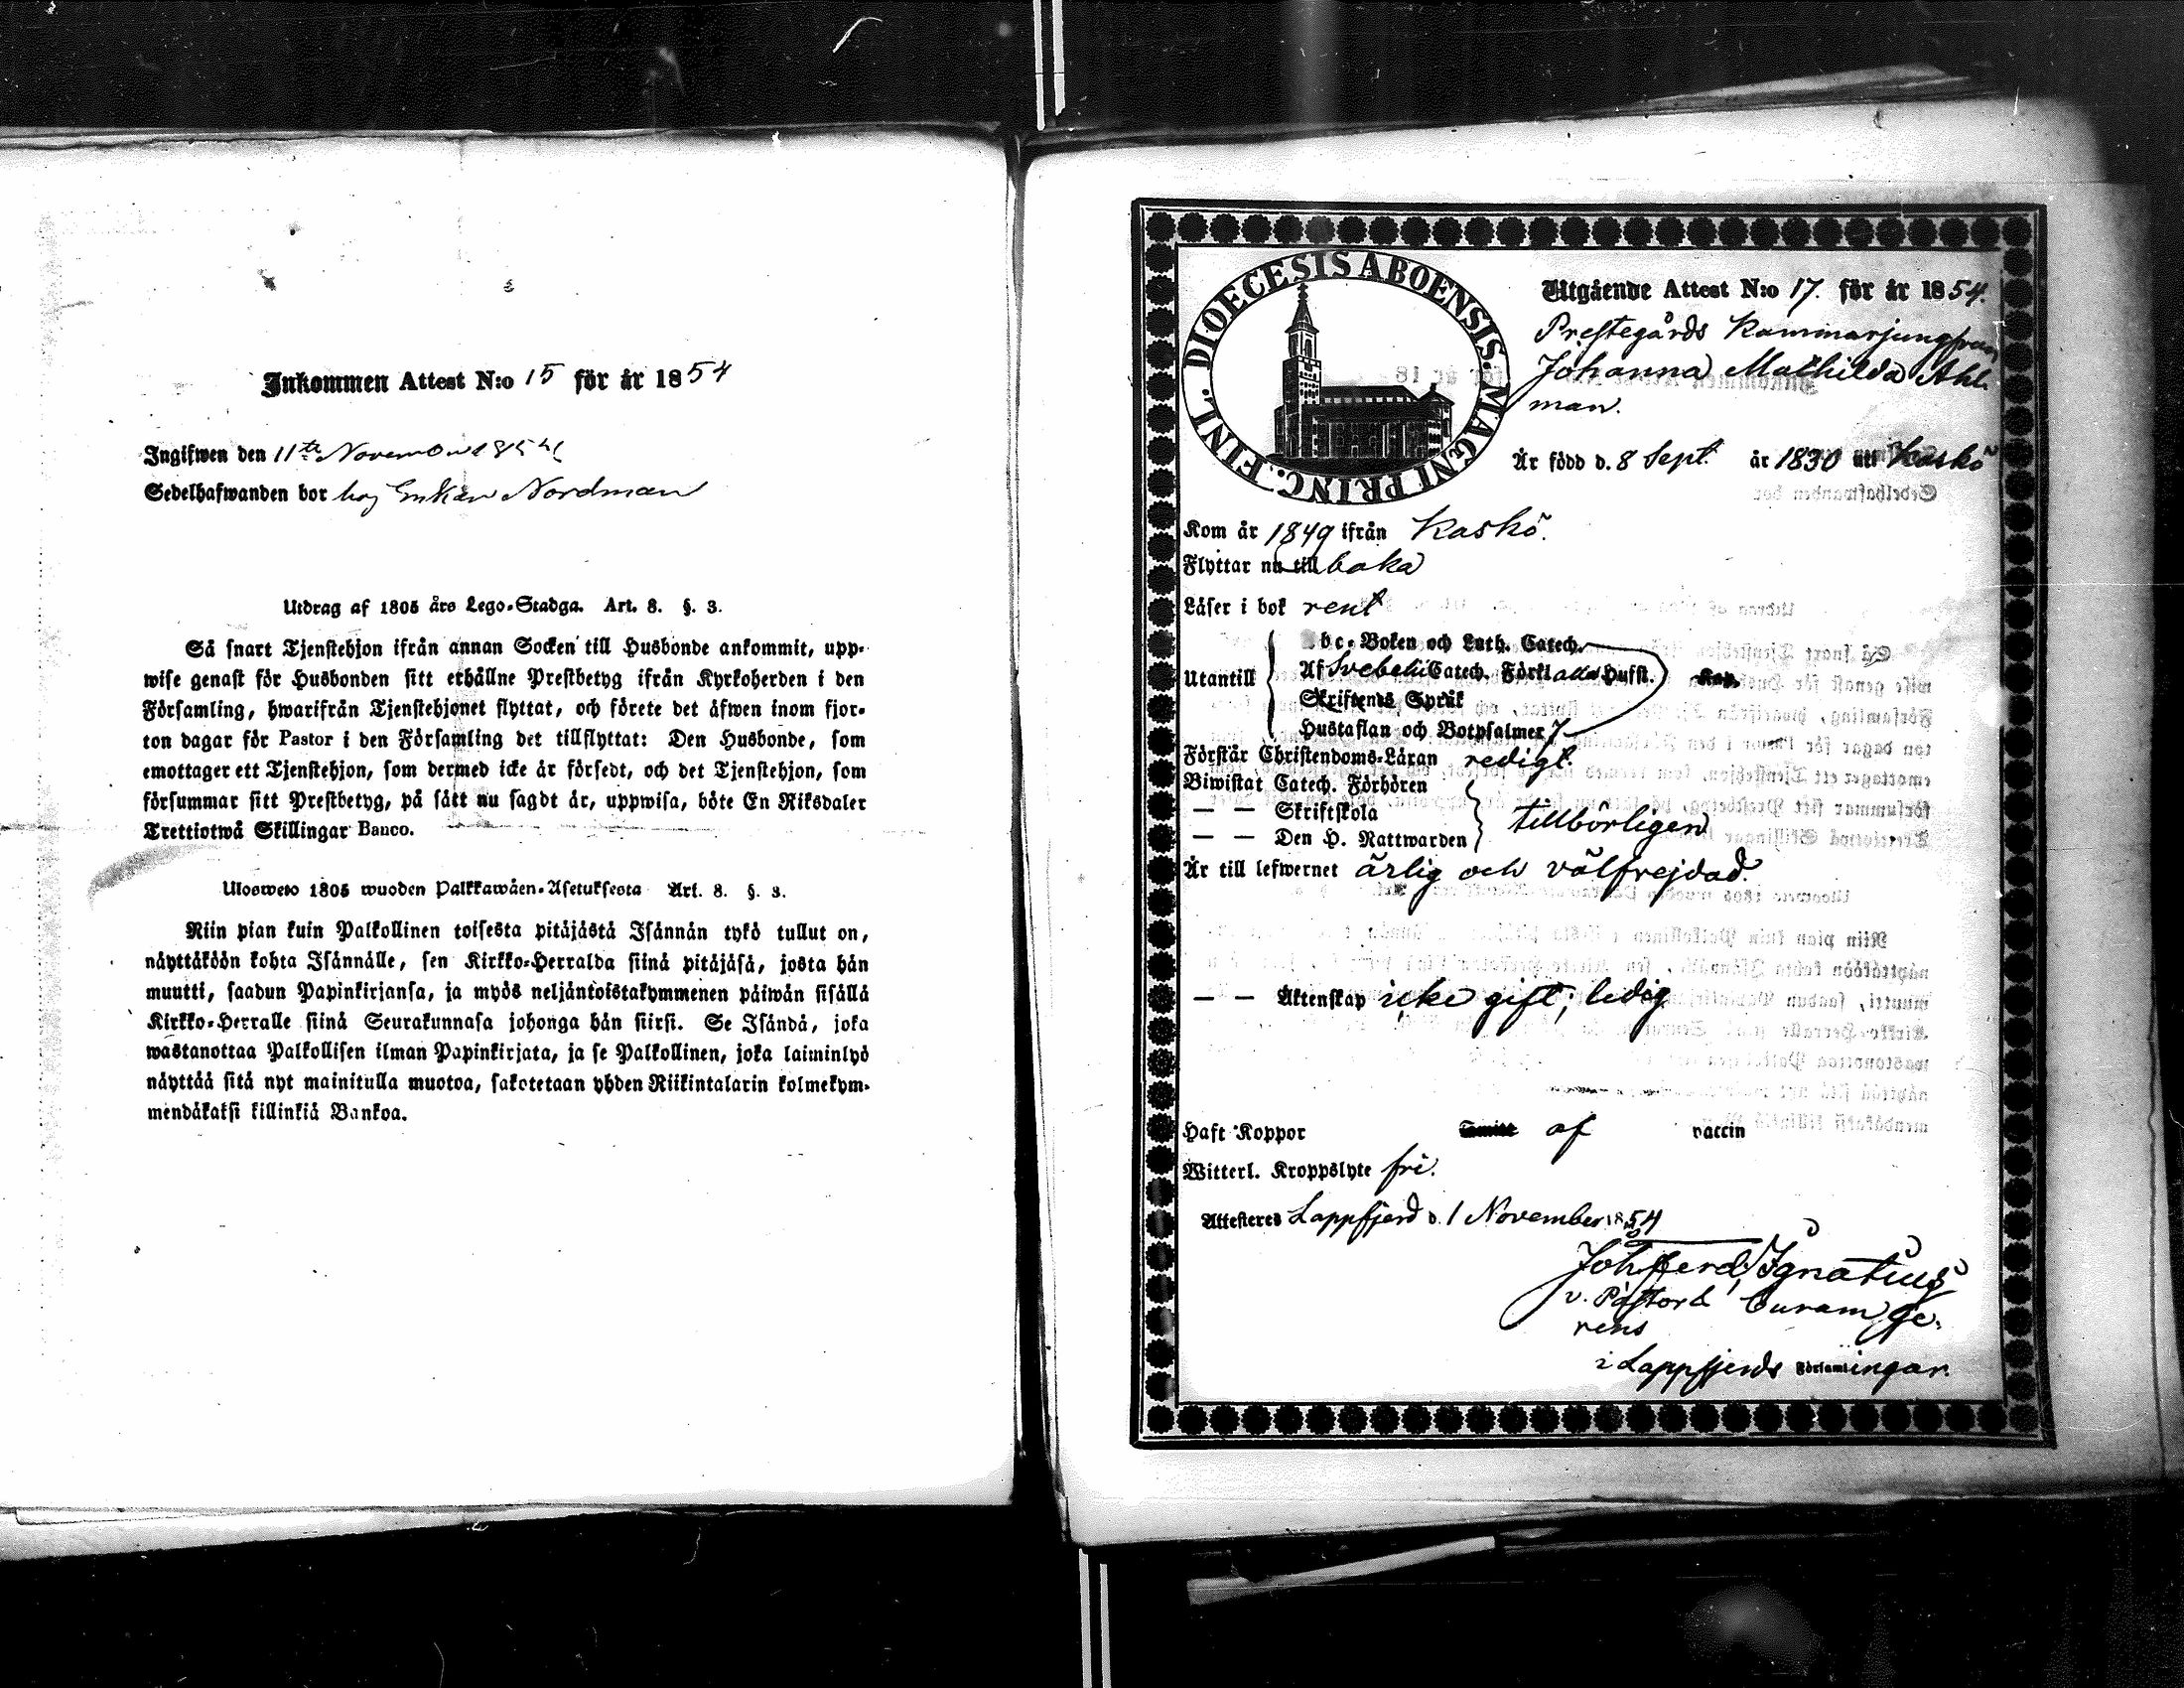 Inkommen Attest N:o 15 för år 1854
Ingifwen den 11te November 1854
Sedelhafwanden bor hos Enkan Nordman
Utdrag af 1805 års Lego-Stadga. Art. 8. §. 3.
Så snart Tjenstehjon ifrån annan Socken till Husbonde ankommit, upp-
wise genast för Husbonden sitt erhållne Prestbetyg ifrån Kyrkoherden i den
Församling, hwarifrån Tjenstehjonet flyttat, och förete det äfwen inom fjor-
ton dagar för Pastor i den Församling det tillflyttat: Den Husbonde, som
emottager ett Tjenstehjon, som dermed icke är försedt, och det Tjenstehjon, som
försummar sitt Prestbetyg, på sätt nu sagdt är, uppwisa, böte En Riksdaler
Trettiotwå Skillingar Banco.
Uloswets 1805 wuoden Palkkawäen-Asetuksesta Art. 8. §. 3.
Niin pian kuin Palkollinen toisesta pitäjästä Isännän tykö tullut on,
näyttäköön kohta Isännälle, sen Kirkko-Herralda siinä pitäjäsä, josta hän
muutti, saadun Papinkirjansa, ja myös neljäntoistakymmenen päiwän sisällä
Kirkko-Herralle siinä Seurakunnasa johonga hän siirsi. Se Isändä, joka
wastanottaa Palkollisen ilman Papinkirjata, ja se Palkollinen, joka laiminlyö
näyttää sitä nyt mainitulla muotoa, sakotetaan yhden Riikintalarin kolmekym-
mendäkaksi killinkiä Bankoa.
DIOECESIS ABOENSIS. MAGNI PRINC. FINL.
Utgående Attest N:o 17. för år 1854.
Prestegårds Kammarjungfrun
Johanna Mathilda Ahl-
man.
Är född d. 8 Sept. år 1830 uti Kaskö
Kom år 1849 ifrån Kaskö.
Flyttar nu tillbaka
Läser i bok rent
Utantill
Abc-Boken och Luth. Catech.
Af Svebelii Catech. Förkl alla Hufst. Kap.
Skriftenes Språk
Hustaflan och Botpsalmer 7
Förstår Christendoms-Läran redigt.
Biwistat Catech. Förhören
— — Skriftskola
— — Den H. Nattwarden
tillbörligen
Är till lefwernet ärlig och välfrejdad.
— — Äktenskap icke gift, ledig
Haft Koppor af vaccin
Witterl. Kroppslyte fri.
Attesteres Lappfjerd d. 1 November 1854
Joh. Ferd. Ignatius
v. Pastor & Curam ge-
rens
i Lappfjerds Församlingar.